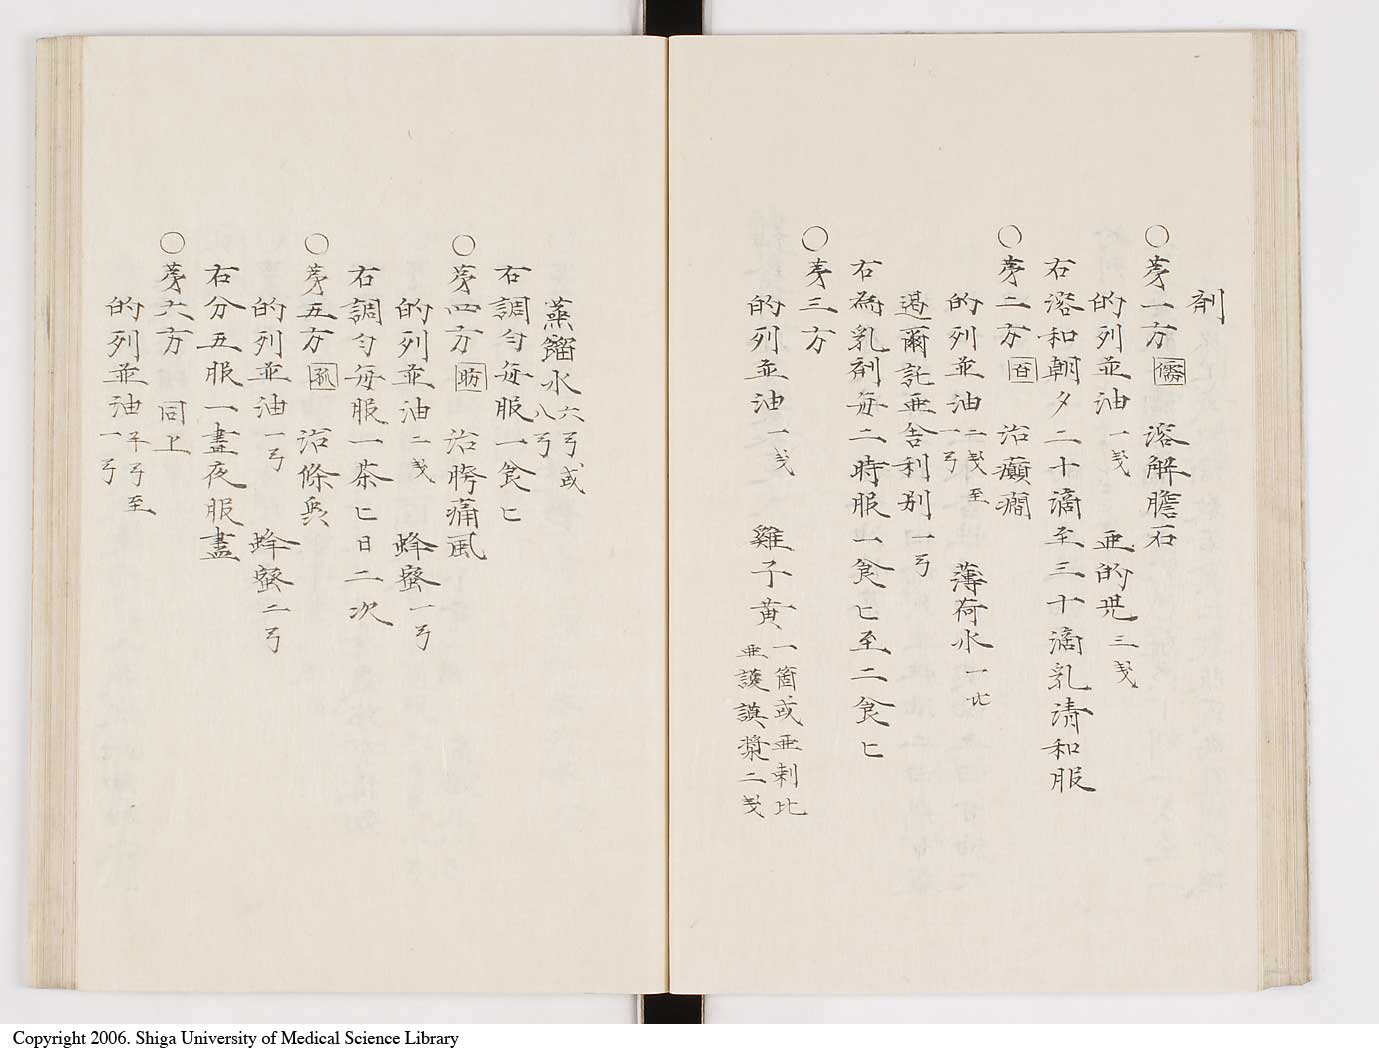 剤
○第一方 儒 溶解膽石
的列並油 一戔 亜的児 三戔
右溶和朝夕二十滴至三十滴乳清和服
○第二方 㕣 治癲癇
的列並油 二戔至一丂 薄荷水 一比
遏爾託亜舎利別 一丂
右為乳剤毎二時服一食匕至二食匕
○第三方
的列並油 一戔 雞子黄 一箇或亜剌比亜護謨漿二戔
蒸餾水 六丂或八丂
右調匀毎服一食匕
○第四方 昉 治胯痛風
的列並油 二戔 蜂蜜 一丂
右調匀毎服一茶匕日二次
○第五方 治條
的列並油 一丂 蜂蜜 二丂
右分五服一晝夜服盡
○第六方 同上
的列並油 半丂至一丂
Copyright 2006. Shiga University of Medical Science Library